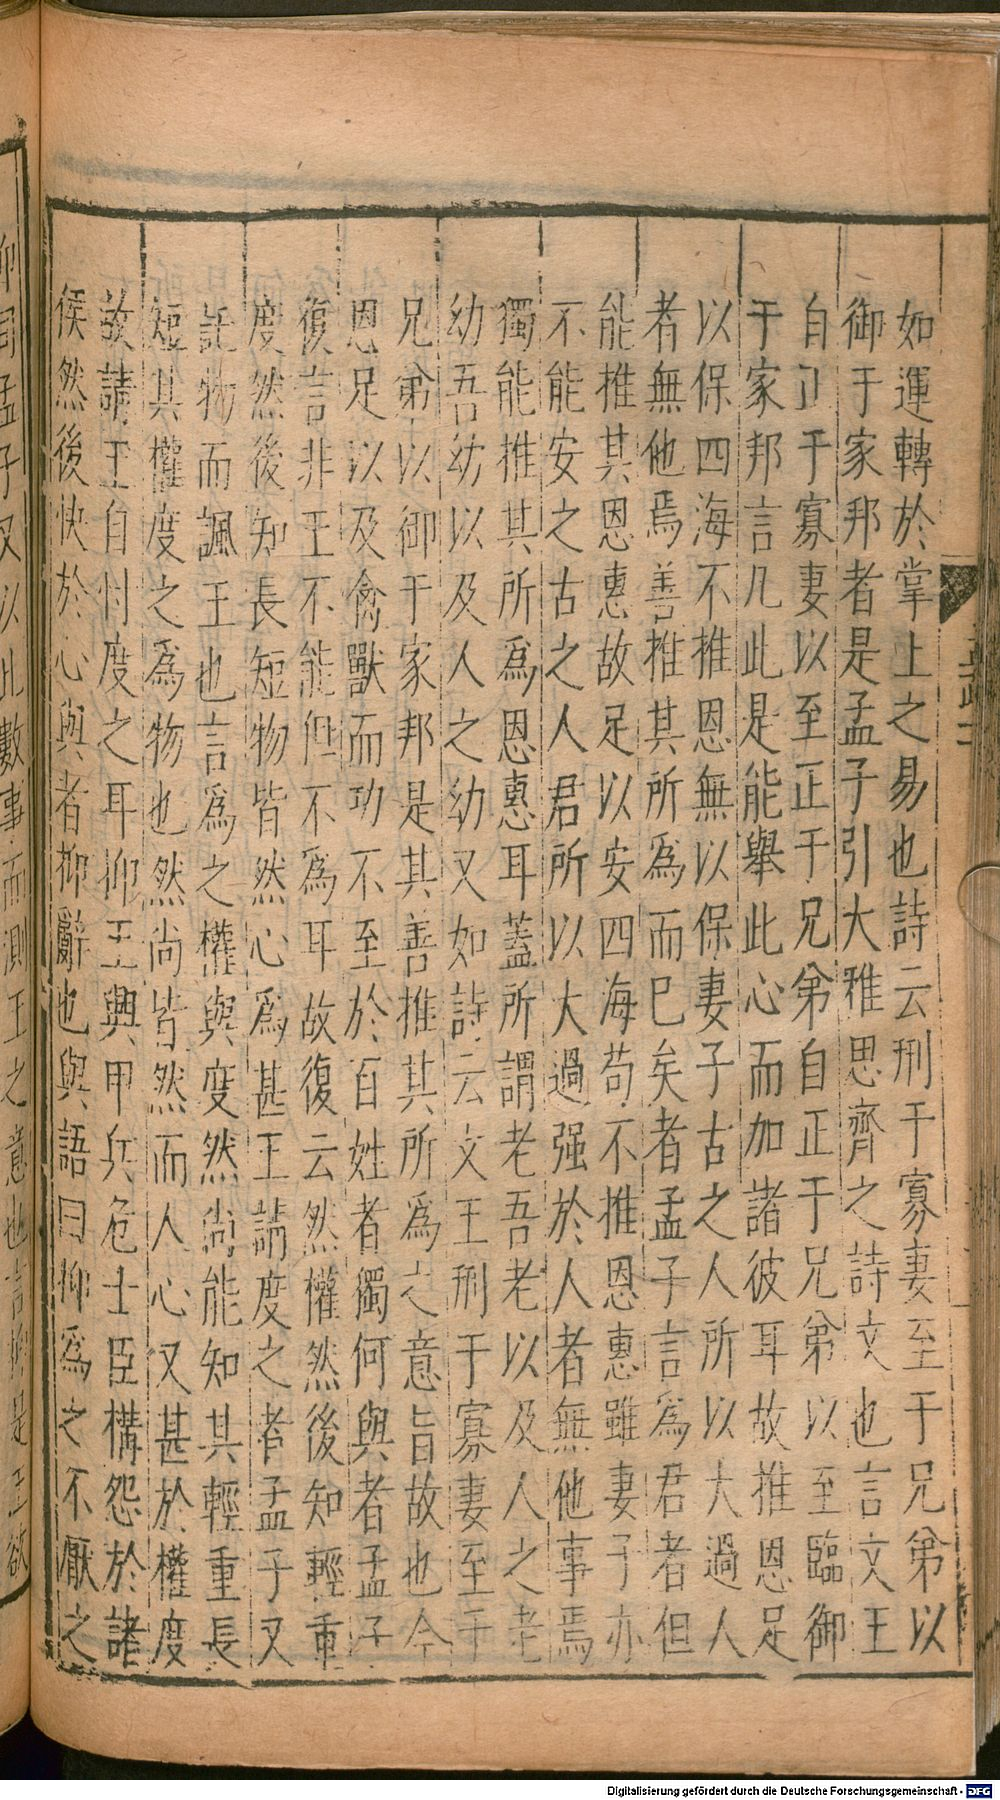 如運轉於掌上之易也詩云刑于寡妻至于兄弟以
御于家邦者是孟子引大雅思齊之詩文也言文王
自正于寡妻以至正于兄弟自正于兄弟以至臨御
于家邦言凡此是能舉此心而加諸彼耳故推恩足
以保四海不推恩無以保妻子古之人所以大過人
者無他焉善推其所為而已矣者孟子言為君者但
能推其恩惠故足以安四海苟不推恩惠雖妻子亦
不能安之古之人君所以大過强於人者無他事焉
獨能推其所為恩惠耳蓋所謂老吾老以及人之老
幼吾幼以及人之幼又如詩云文王刑于寡妻至于
兄弟以御于家邦是其善推其所為之意旨故也今
恩足以及禽獸而功不至於百姓者獨何與者孟子
復言非王不能但不為耳故復云然權然後知輕重
度然後知長短物皆然心為甚王請度之者孟子又
託物而諷王也言為之權與度然尚能知其輕重長
短其權度之為物也然尚皆然而人心又甚於權度
故請王自忖度之耳抑王興甲兵危士臣構怨於諸
侯然後快於心與者抑辭也與語曰抑為之不厭之
抑同孟子又以此數事而測王之意也言抑是王欲
Digitalisierung gefördert durch die Deutsche Forschungsgemeinschaft - DFG